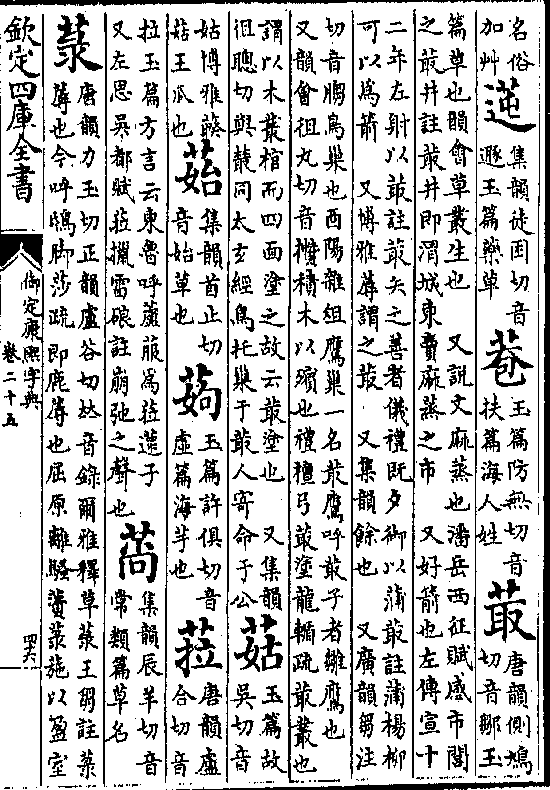 名俗
加艸
集韻徒困切音
遯玉篇藥草
玉篇防無切音
扶篇海人姓
菆
唐韻側鳩
切音鄒玉
篇草也韻會草叢生也 又說文麻蒸也潘岳西征賦感市閭
之菆井註菆井即渭城東賣麻蒸之市 又好箭也左傳宣十
二年左射以菆註菆矢之善者儀禮既夕御以蒲菆註蒲楊柳
可以為箭 又博雅蓐謂之菆 又集韻餘也 又廣韻芻注
切音鳥巢也酉陽雜俎鷹巢一名菆鷹呼菆子者雛鷹也
又韻會徂丸切音欑積木以殯也禮檀弓菆塗龍輴疏菆叢也
謂以木叢棺而四面塗之故云菆塗也 又集韻
徂聰切與叢同太玄經鳥托巢于菆人寄命于公
菇
玉篇故
吳切音
姑博雅
菇王瓜也
集韻首止切
音始草也
玉篇許俱切音
虛篇海芋也
菈
唐韻盧
合切音
拉玉篇方言云東魯呼蘆菔為菈子
又左思吳都賦菈擸雷硠註崩弛之聲也
集韻辰羊切音
常類篇草名
菉
唐韻力玉切正韻盧谷切𠀤音錄爾雅釋草菉王芻註菉
蓐也今呼鴟脚莎疏即鹿蓐也屈原離騷薋菉葹以盈室
欽定四庫全書
御定康熙字典
卷二十五
四六